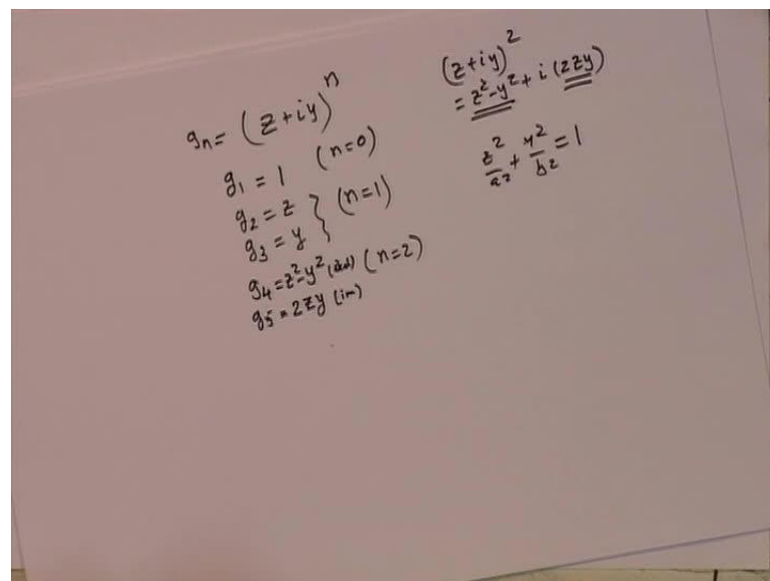 gn = (z+iy)^n
g1 = 1 (n=0)
g2 = z
g3 = y } (n=1)
g4 = z^2-y^2 (n=2)
g5 = 2zy (im)
(z+iy)^2
= z^2-y^2 + i (2zy)
z^2/a^2 + y^2/b^2 = 1